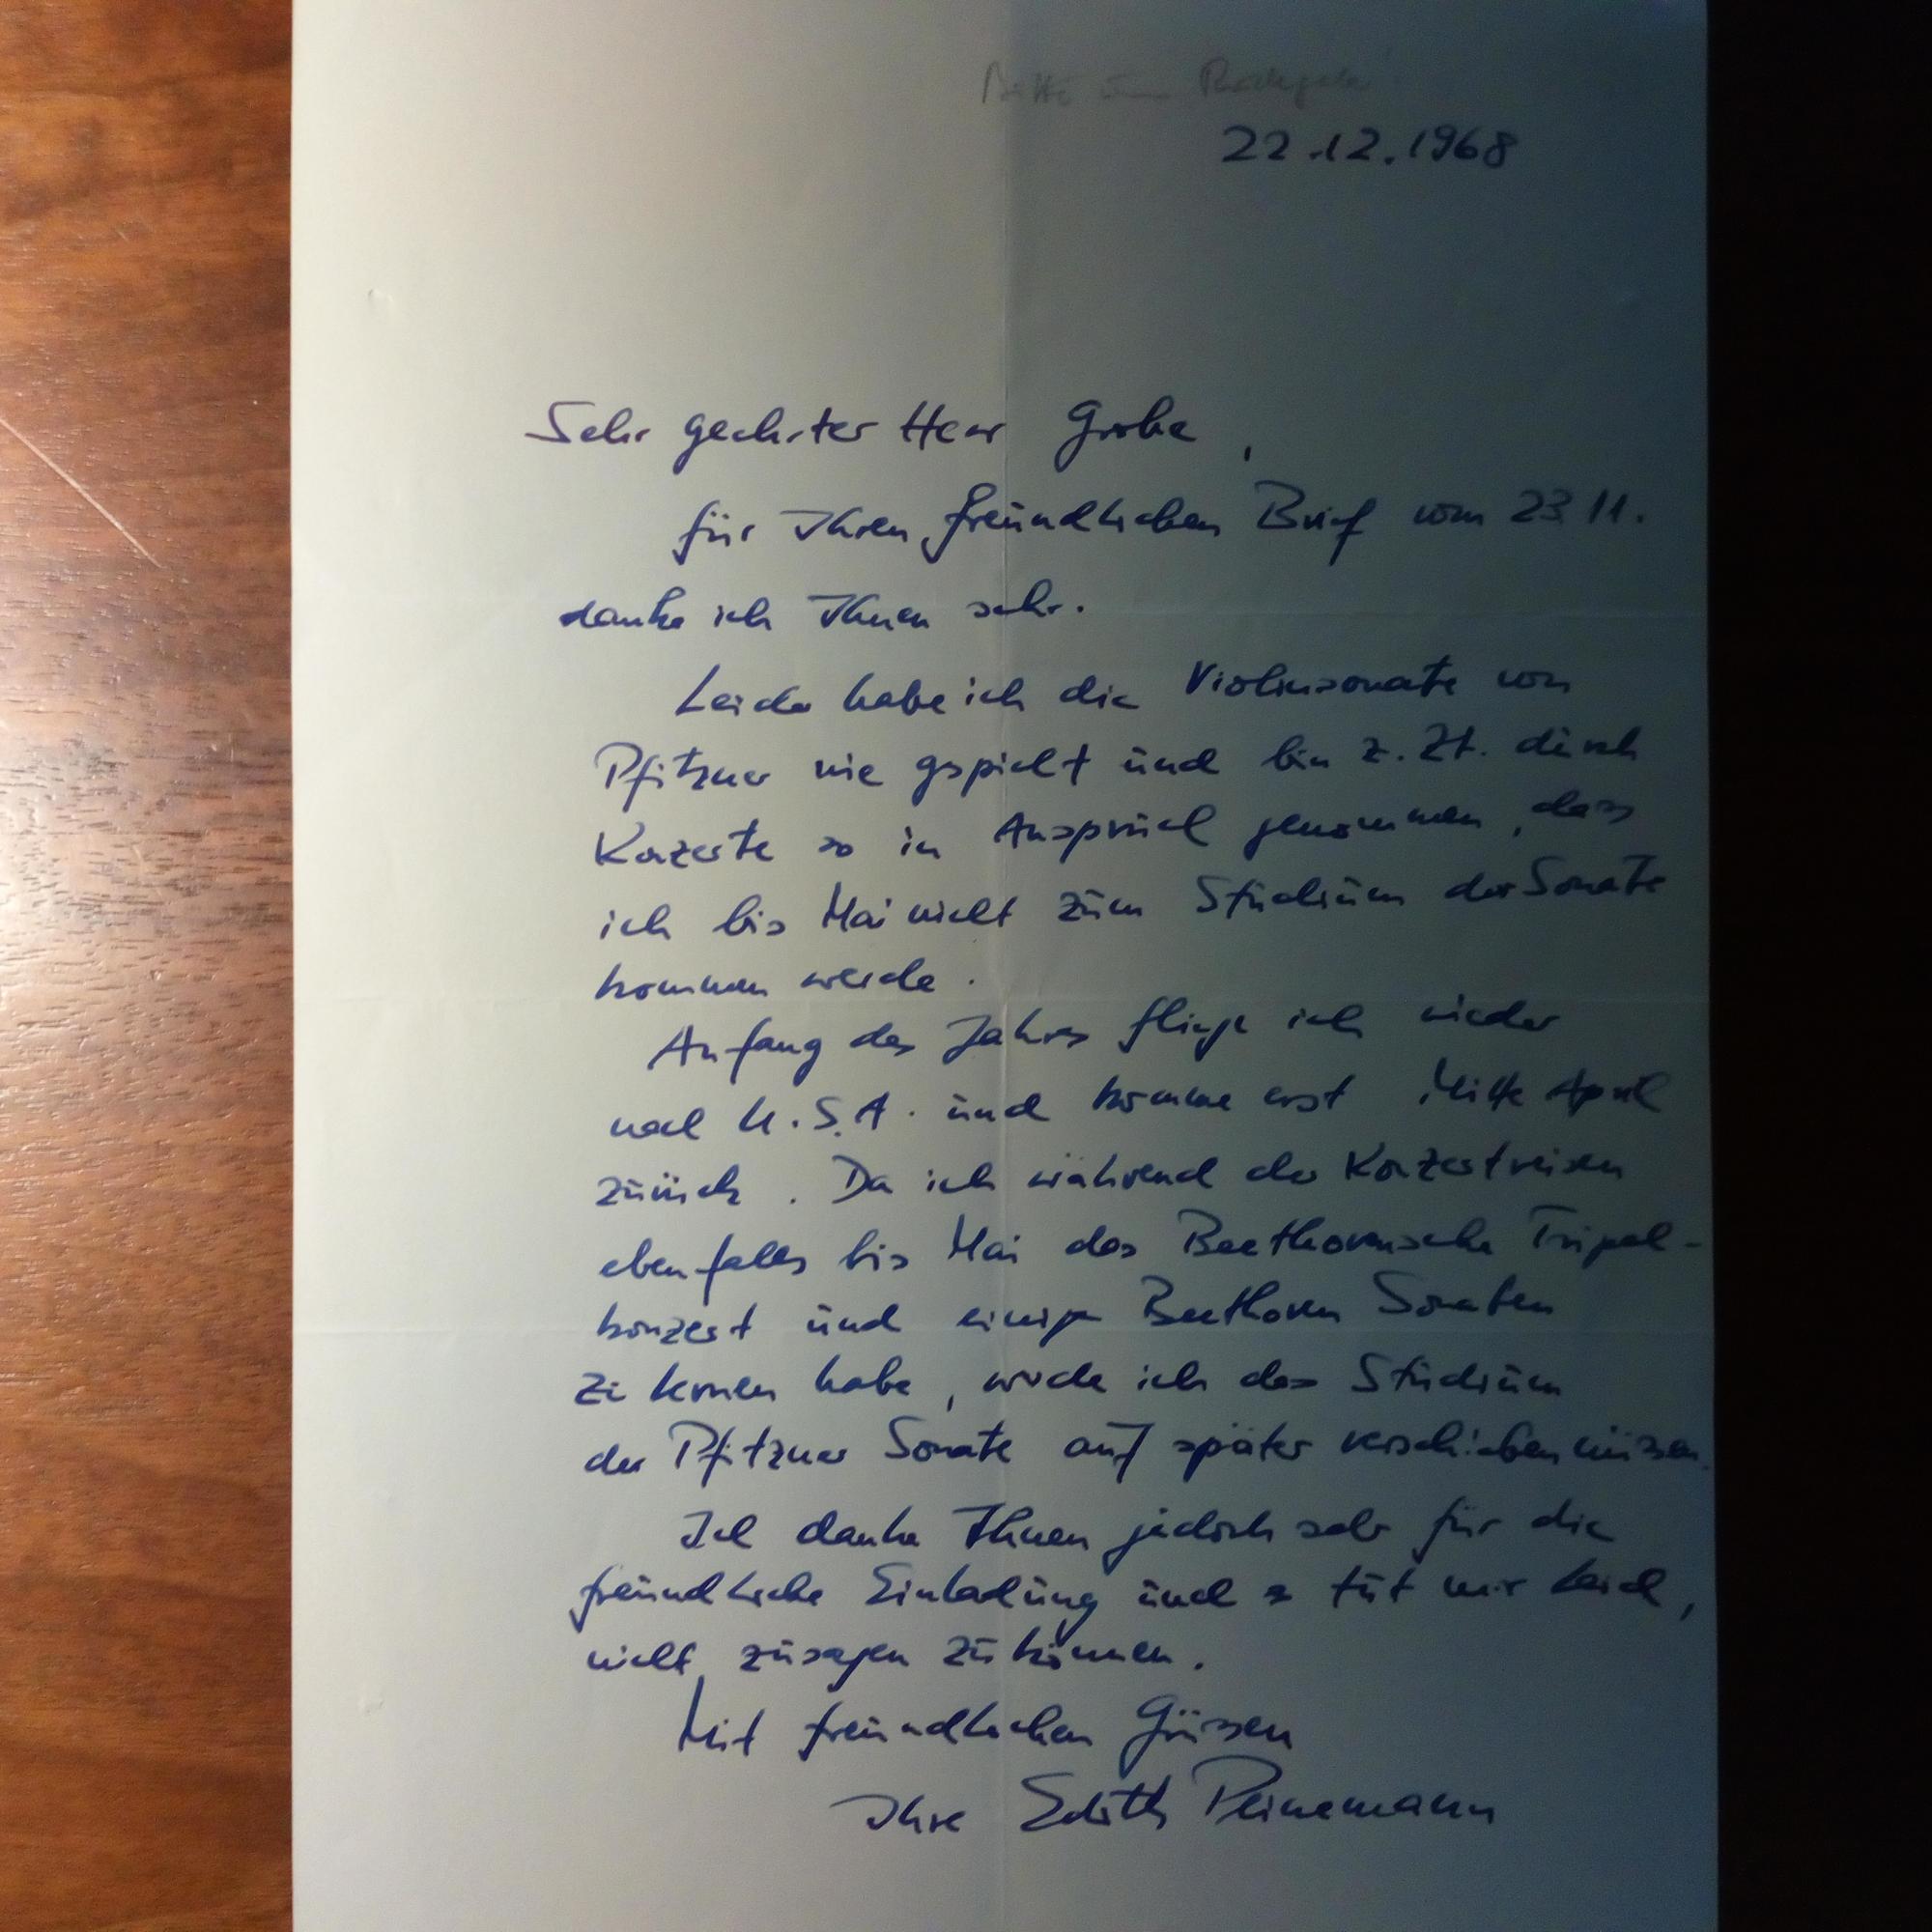 Bitte um Rückgabe!
22.12.1968
Sehr geehrter Herr Grohe,
für Ihren freundlichen Brief vom 23.11.
danke ich Ihnen sehr.
Leider habe ich die Violinsonate von
Pfitzner nie gespielt und bin z. Zt. durch
Konzerte so in Anspruch genommen, dass
ich bis Mai nicht zum Studium der Sonate
kommen werde.
Anfang des Jahres fliege ich wieder
nach U.S.A. und komme erst Mitte April
zurück. Da ich während der Konzertreisen
ebenfalls bis Mai das Beethovensche Tripel-
konzert und einige Beethoven Sonaten
zu lernen habe, werde ich das Studium
der Pfitzner Sonate auf später verschieben müssen.
Ich danke Ihnen jedoch sehr für die
freundliche Einladung und es tut mir leid,
nicht zusagen zu können.
Mit freundlichen Grüssen
Ihre Edith Peinemann